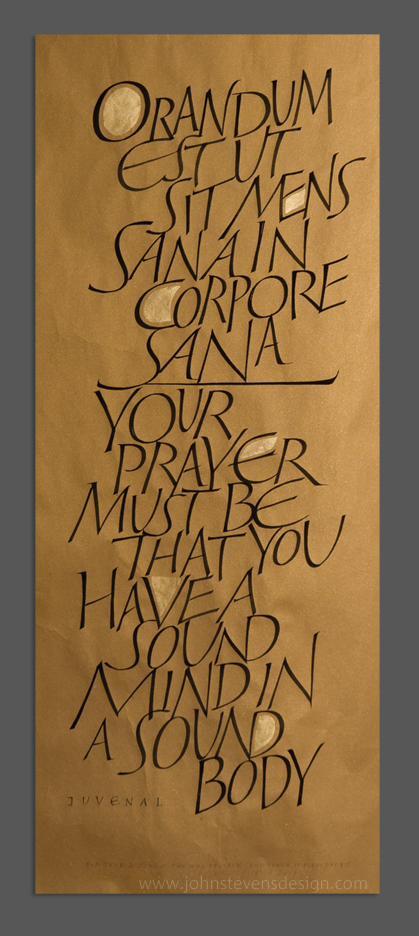 ORANDUM
EST UT
SIT MENS
SANA IN
CORPORE
SANA
YOUR
PRAYER
MUST BE
THAT YOU
HAVE A
SOUND
MIND IN
A SOUND
BODY
JUVENAL
www.johnstevensdesign.com